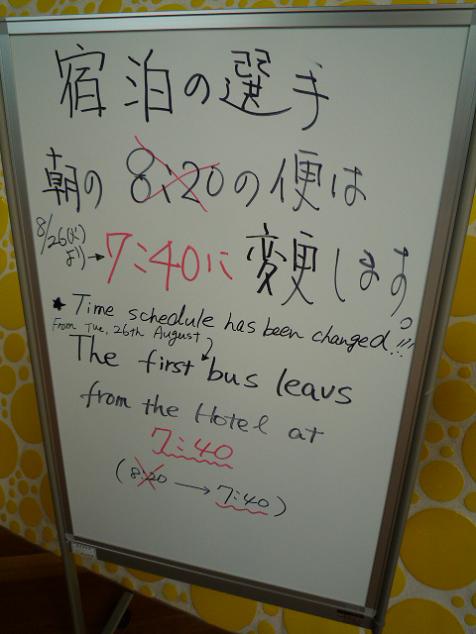 宿泊の選手
朝の 8:20の便は
8/26(火)
より→7:40に 変更します。
★ Time schedule has been changed!!!
From Tue, 26th August
The first bus leavs
from the Hotel at
7:40
(8:20 → 7:40)